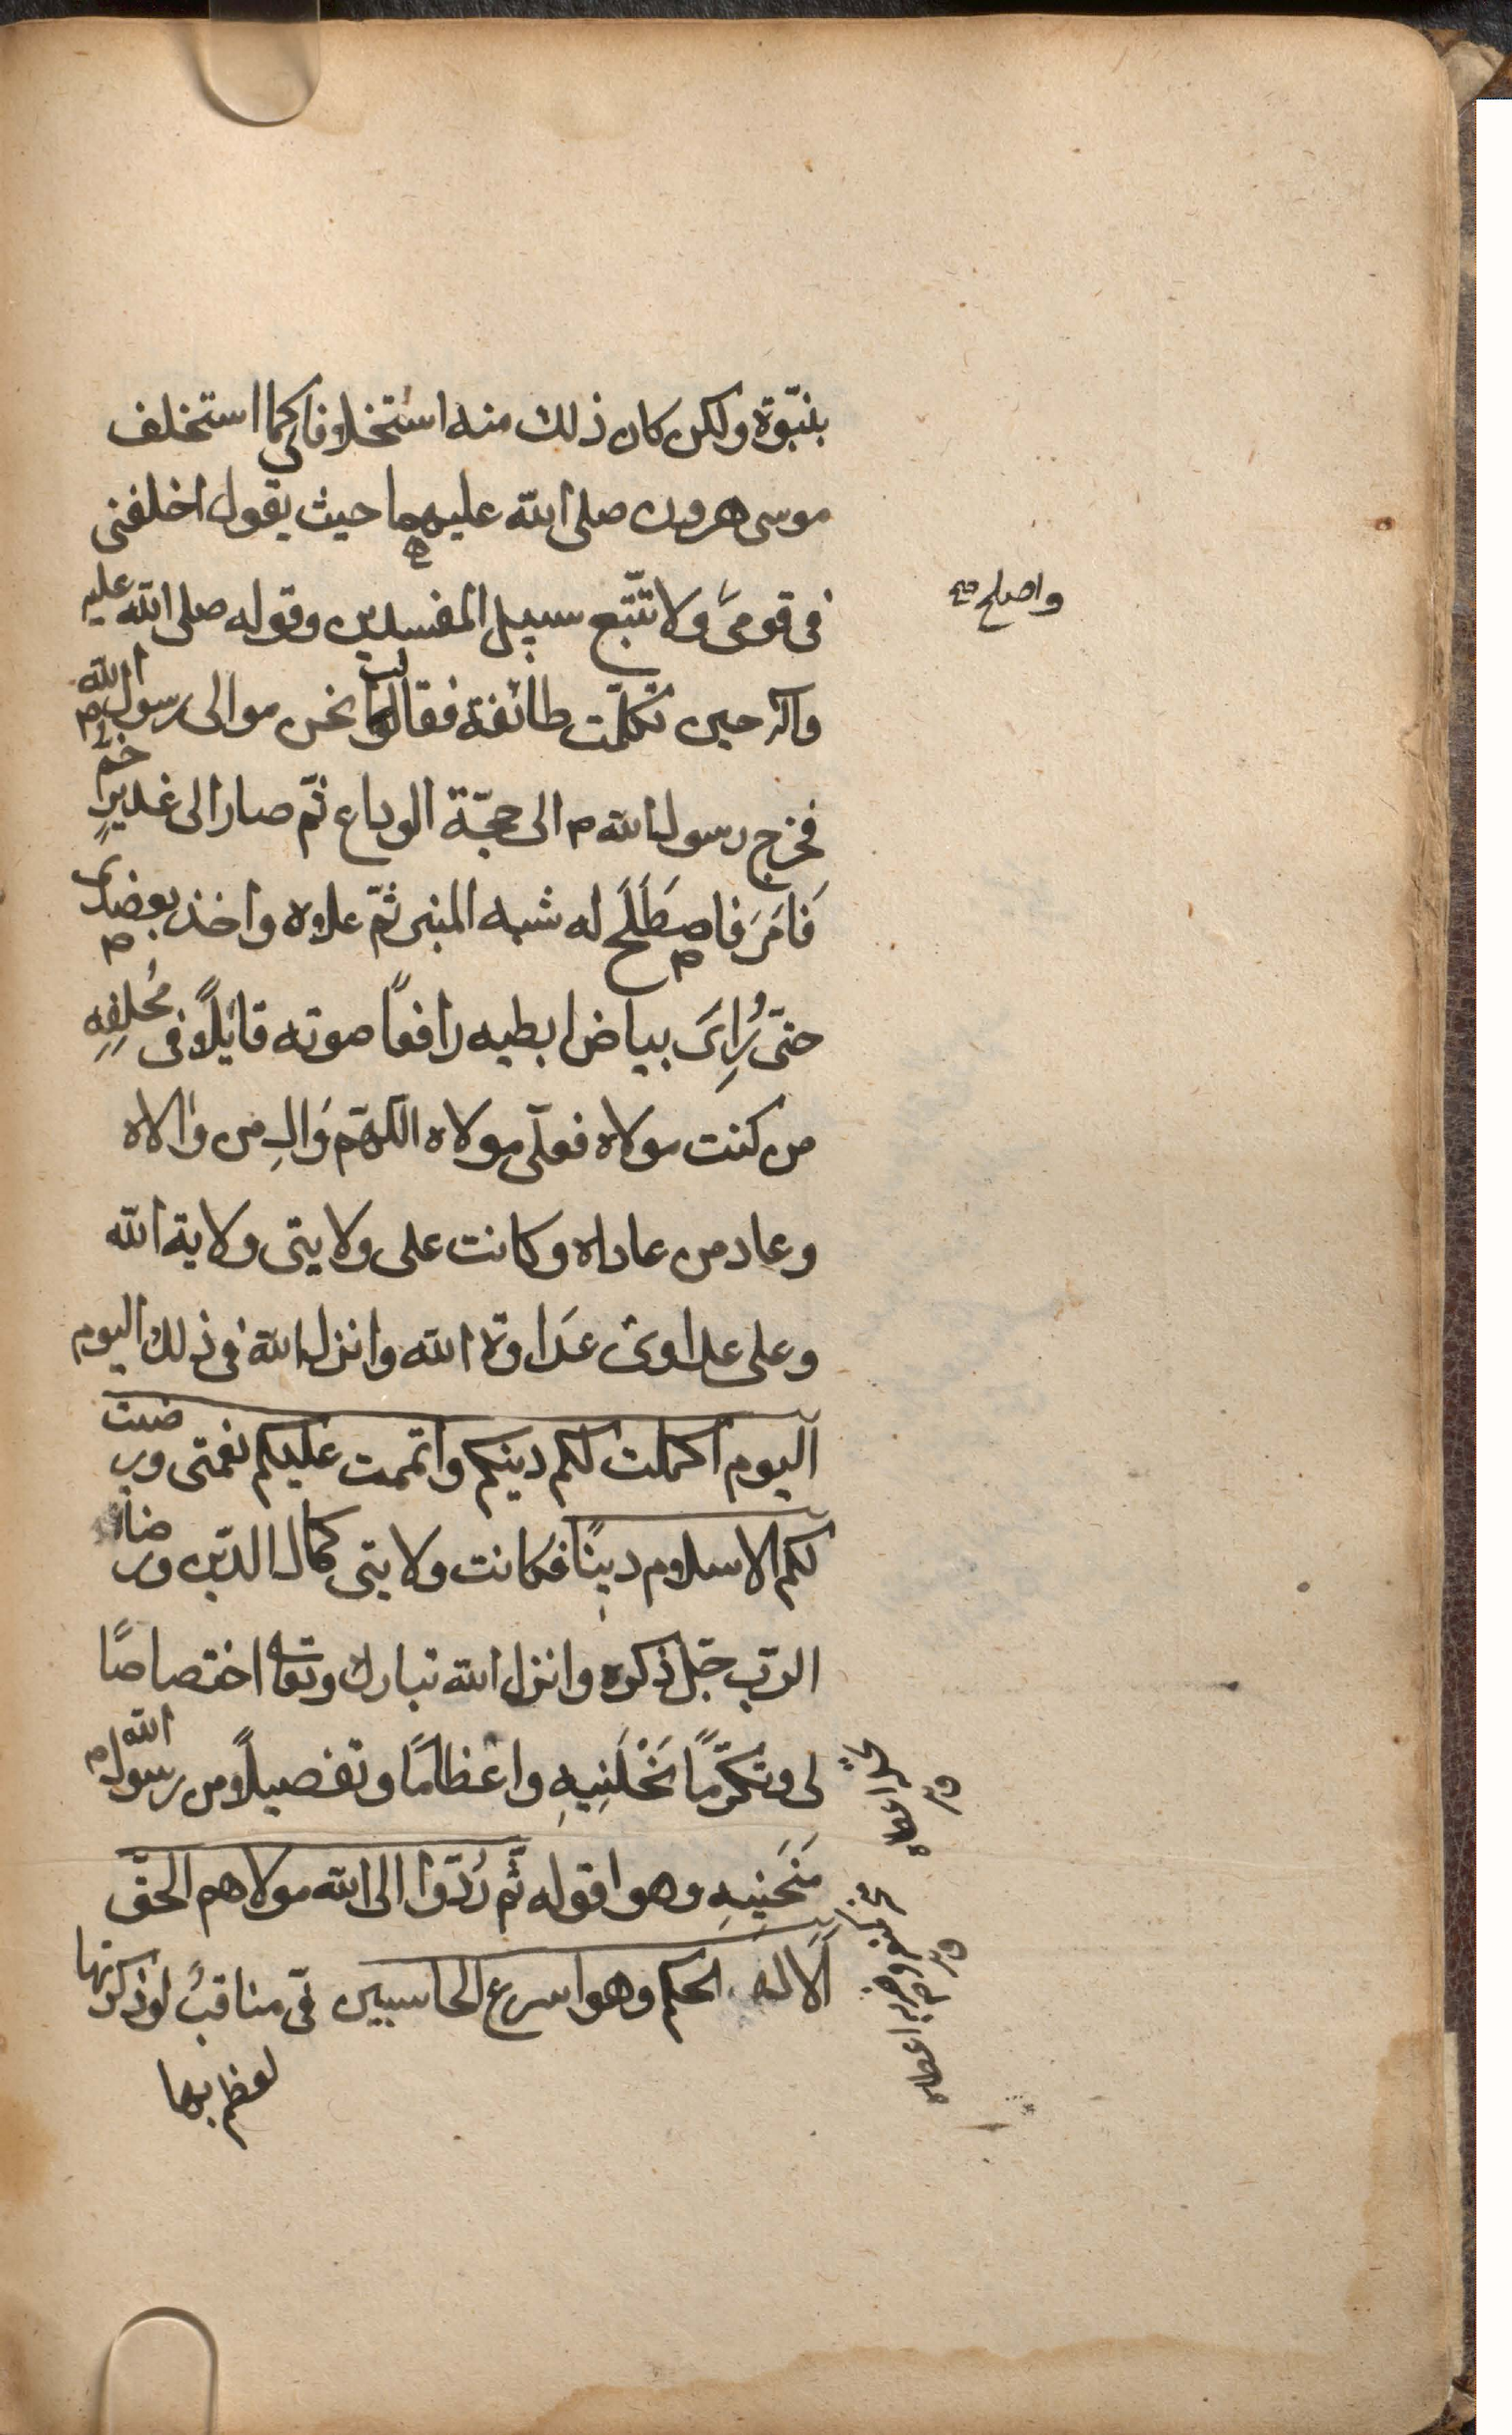 بنبّوة ولكن كان ذلك منه استخلافا كما استخلف
موسى هرون صلى الله عليهما حيث يقول اخلفنى
فى قومى ولا تتّبع سبيل المفسدين وقوله صلى الله عليه
واصلح صح
وآله حين تكلّمت طائفة فقالت نحن موالى رسول الله
فخرج رسول الله ص الى حجّة الوداع ثمّ صار الى غدير خم
فَامَرَ فاصطَلَحَ له شبه المنبر ثمّ علاه واخذ بعضدى
حتّى رُاِىَ بياض ابطيه رافعًا صوته قايلًا فى مُحلِفِهِ
من كنت مولاه فعلىّ مولاه اللهّم وَالِ من والاه
وعاد من عاداه وكانت على ولايتى ولاية الله
وعلى عداوتى عَدَاوة الله وانزل الله فى ذلك اليوم
اليوم اكملت لكم دينكم واتممت عليكم نعمتى ورضيت
لكم الاسلام دينًا فكانت ولايتى كمال الدّين ورضا
الربّ جلّ ذكره وانزل الله تبارك وتعالى اختصاصًا
لى وتكرّمًا نَحْلَنِيهِ واعظامًا وتفصيلًا من رسول الله
مَنَحَنِيهِ وهو اقوله ثّم رُدّوا الى الله مولاهم الحقّ
اَلَا له الحكم وهو اسرع الحاسبين فىّ مناقبُ لو ذكرتها
لعظم بها